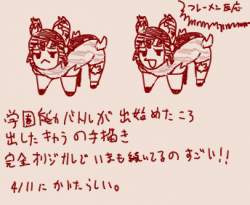 フレーメン反応
学園能力バトルが出始めたころ
出したキャラの手描き
完全オリジナルでいまも続いてるの すごい!!
4/11に かいたらしい。